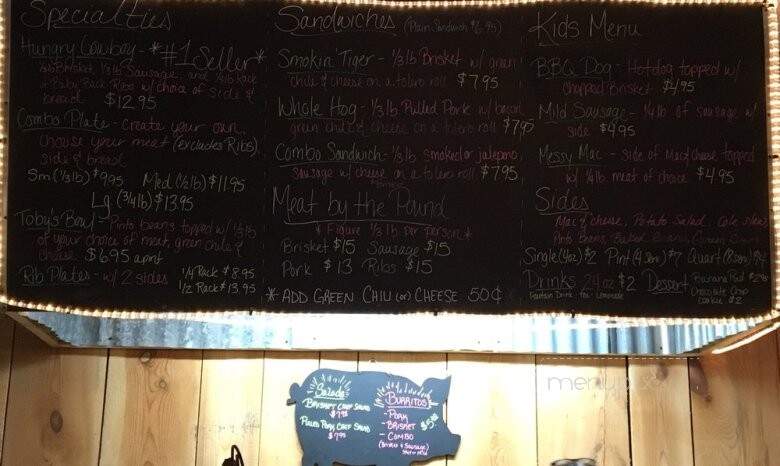 Specialties
Hungry Cowboy - *#1 Seller*
1/3 lb Brisket, 1/3 lb Sausage and 1/4 rack
Baby Back Ribs w/ choice of side &
bread $12.95
Combo Plate - Create your own
choose your meat (excludes Ribs)
side & bread
Sm (1/3 lb) $9.95 Med (1/2 lb) $11.95
Lg (3/4 lb) $13.95
Toby's Bowl - Pinto beans topped w/ 1/3 lb
of your choice of meat, green chile &
cheese $6.95 a pint
Rib Plates - w/ 2 sides 1/4 Rack $8.95
1/2 Rack $13.95
Sandwiches (Plain Sandwich $6.95)
Smokin' Tiger - 1/3 lb Brisket w/ green
chile & cheese on a telera roll $7.95
Whole Hog - 1/3 lb Pulled Pork w/ bacon,
green chile & cheese on a telera roll $7.95
Combo Sandwich - 1/3 lb smoked or jalapeno
sausage w/ cheese on a telera roll $7.95
Meat by the Pound
* Figure 1/3 lb per person *
Brisket $15 Sausage $15
Pork $13 Ribs $15
* ADD GREEN CHILI (or) CHEESE 50¢
Kids Menu
BBQ Dog - Hotdog topped w/
chopped Brisket $4.95
Mild Sausage - 1/4 lb of sausage w/
side $4.95
Messy Mac - side of Mac & cheese topped
w/ 1/4 lb meat of choice $4.95
Sides
Mac & cheese, Potato Salad, Cole Slaw,
Pinto Beans, Baked Beans, Green Beans
Single (4oz) $2 Pint $7 Quart
Drinks 24oz $2 Dessert Banana Pud
Fountain Drink Tea Lemonade Chocolate Chip
Cookie $2
Salads
Brisket Chef Salad
$7.95
Pulled Pork Chef Salad
$7.95
Burritos
- Pork
- Brisket
- Combo
(Brisket & Sausage)
menu